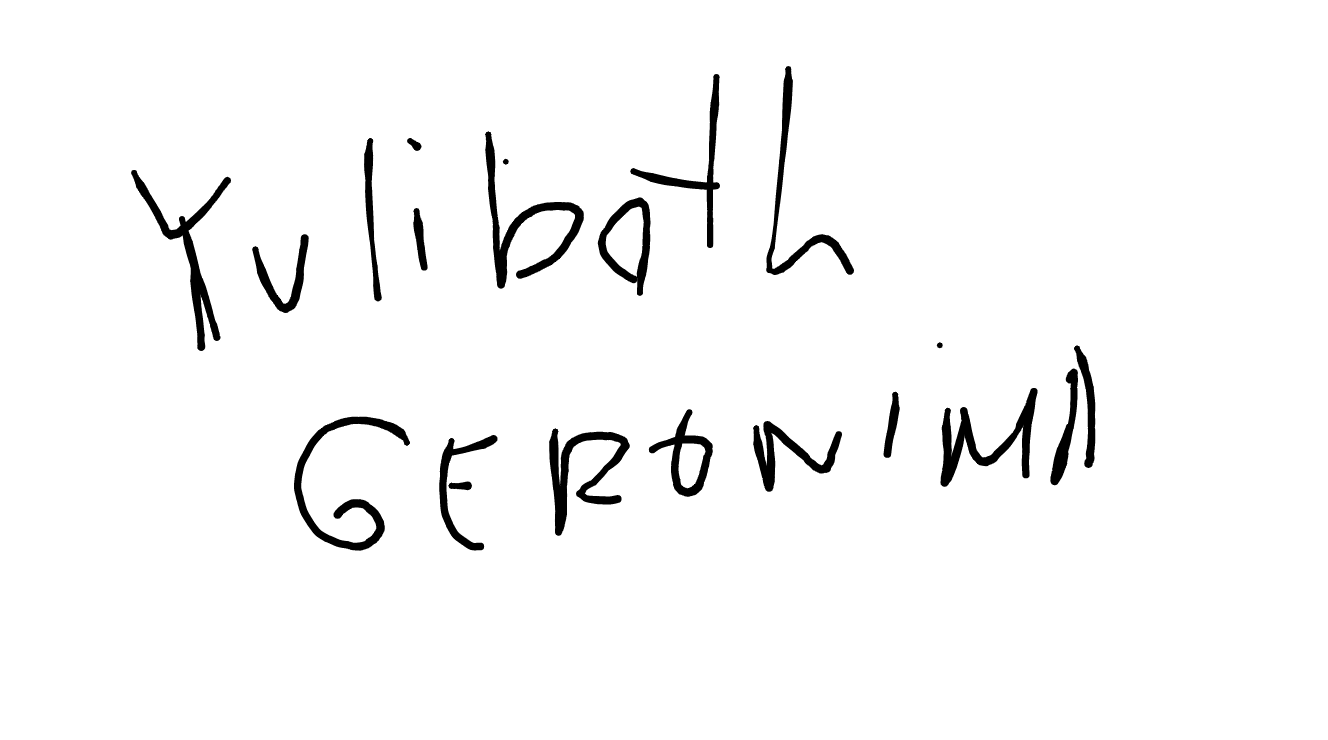 Yulibath
GERONIMA